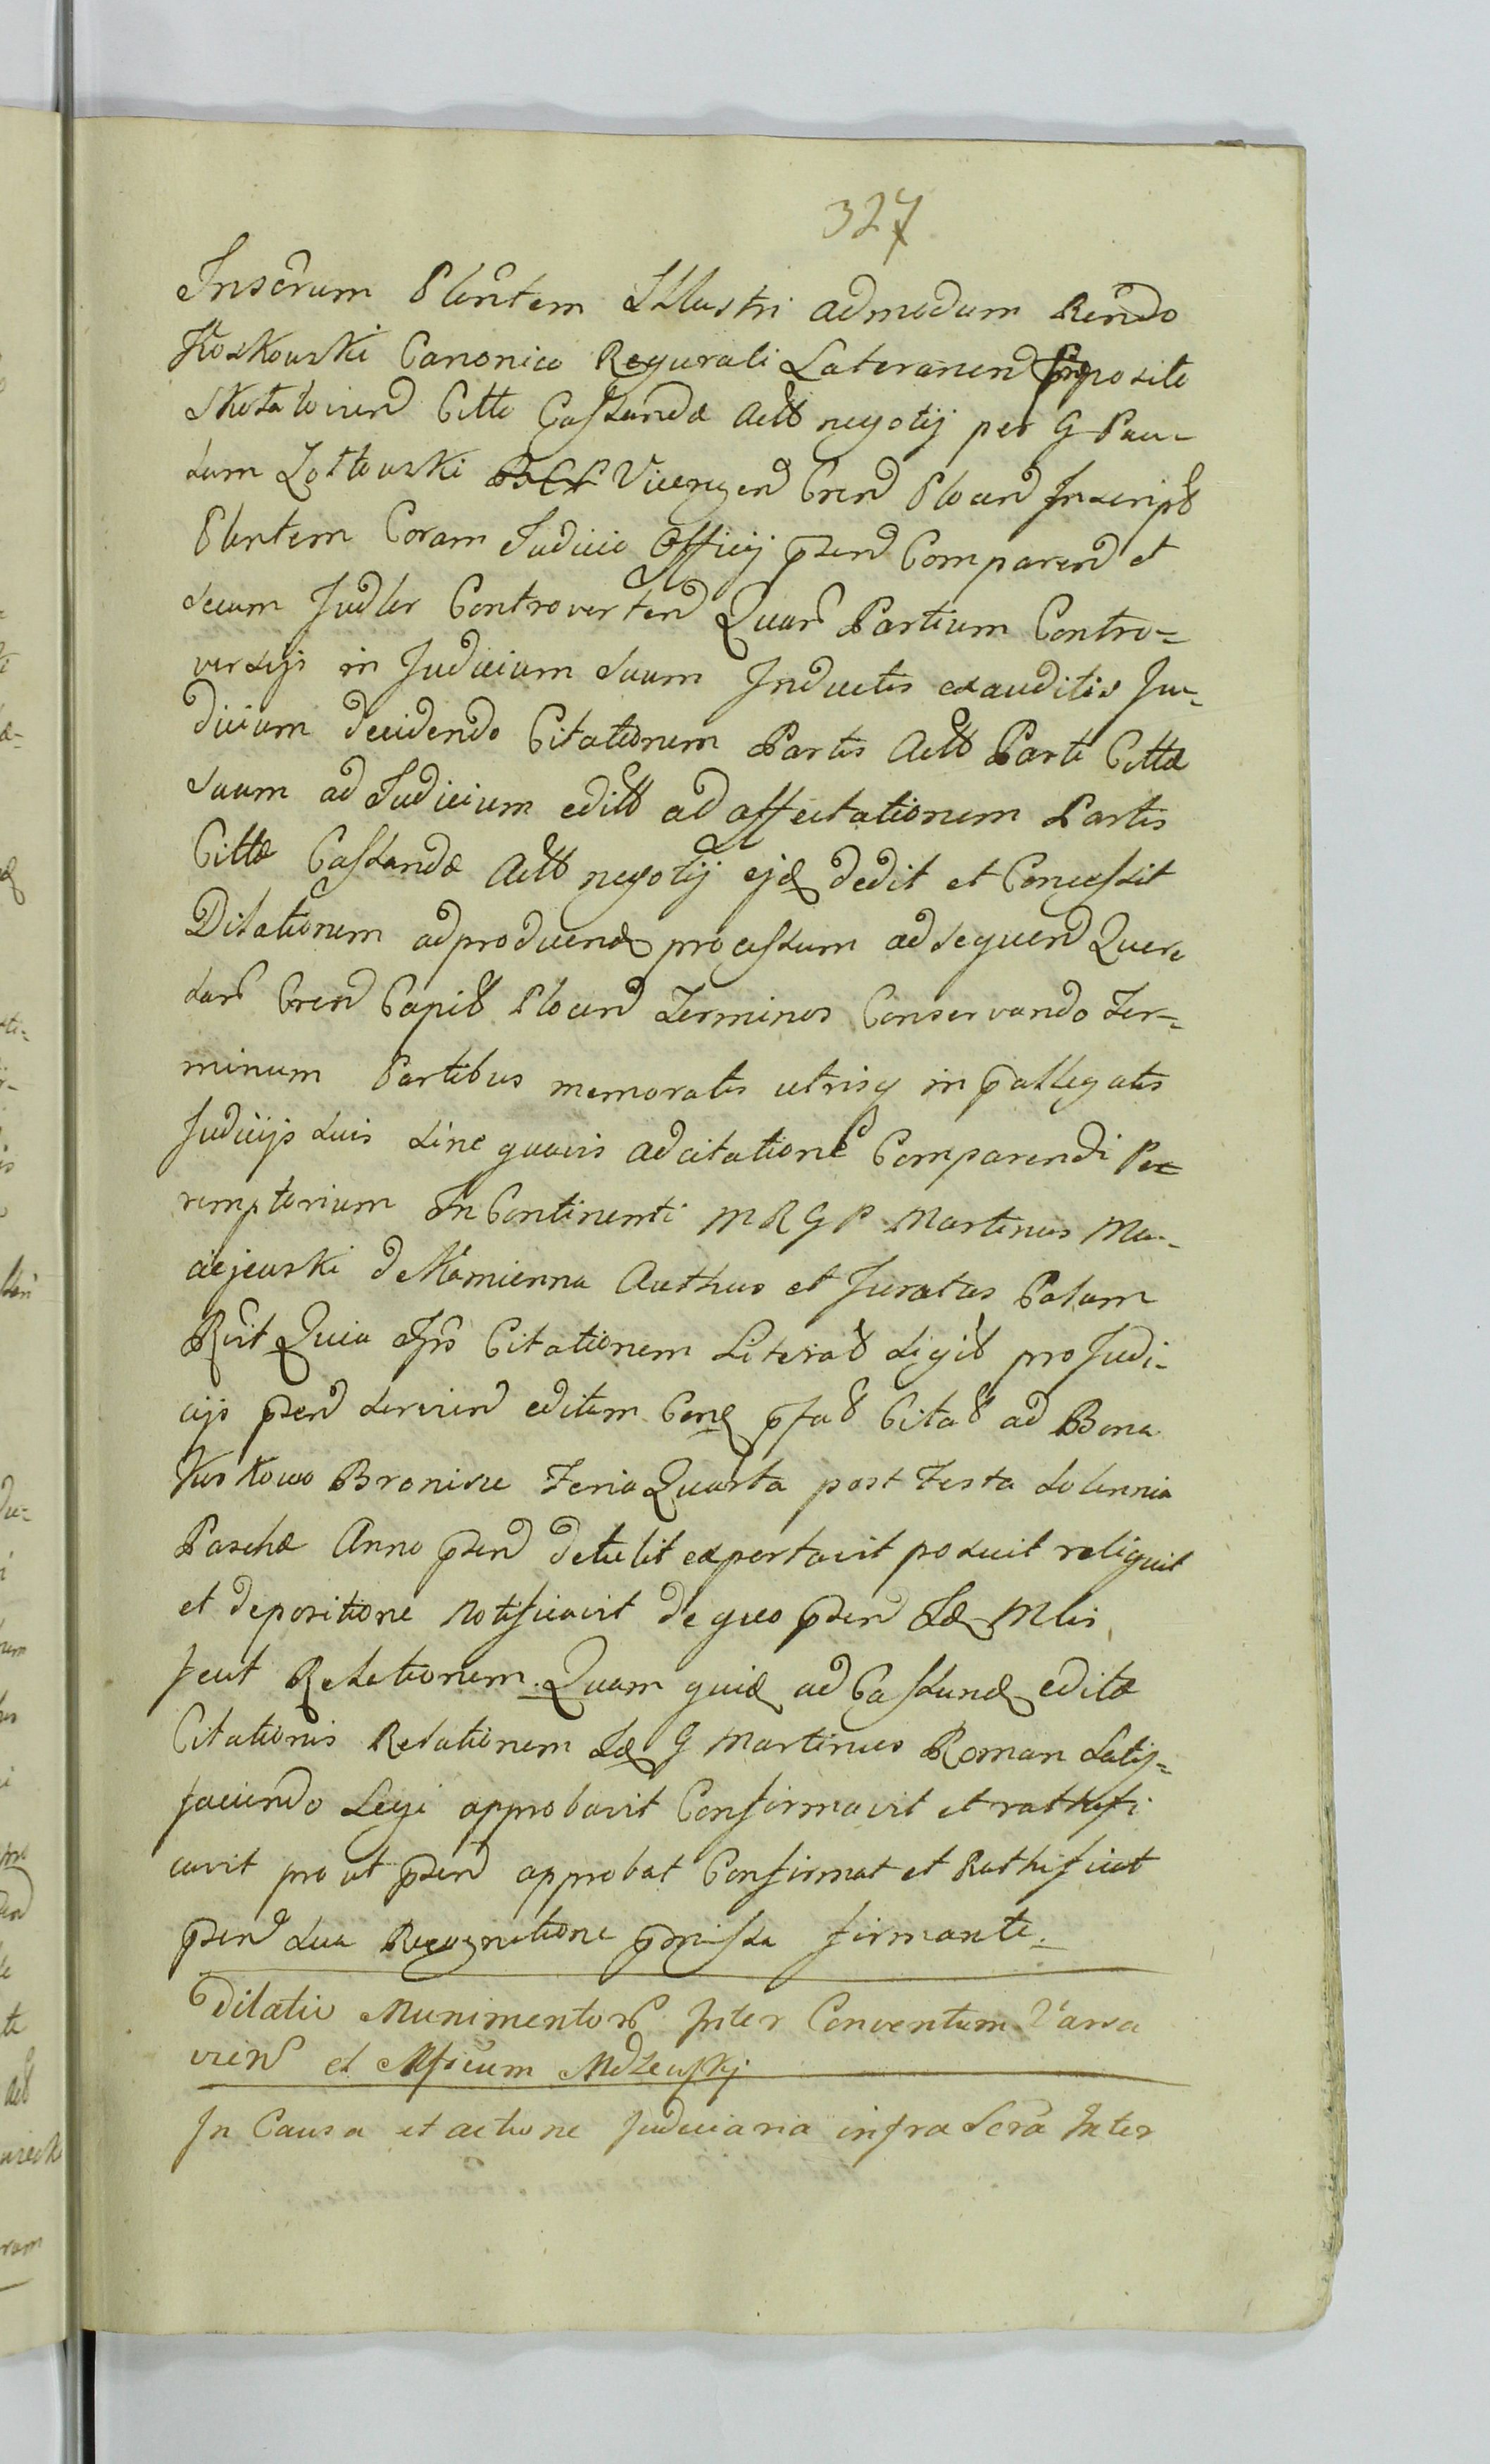 327
Inscrum Plentem Illustri admodum Rendo
Koskowski Canonico Regurali Lateranen Praeposito
Skotatovien Citto Cassandae Actt negotij per G Pau-
lum Zottowski Vicergen Cren Plocen Inscript
Plentem Coram Judicio Officij pnsen Comparen et
secum Judler Controverten Quar Partium Contro=
versijs in Judicium suum Inductis exauditis Ju-
dicium decidendo Citationem Partis Actt Parti Cittae
suum ad Judicium editt ad affectationem Partis
Cittae Cassandae Actt negotij ejd dedit et Concessit
Dilationem ad producend processum ad sequen Quere
lar Cren Capit Plocen Terminos Conservando Ter=
minum Partibus memoratis utrisq in pallegatis
Judicijs suis sine quavis adcitatione Comparendi Pe
remptorium In Continenti M R G P Martinus Ma-
ciejewski de Kamienna Authus et Juratus Palam
Rcit Quia Ipse Citationem Literat sigit pro Judi-
cijs pnsen servien editam Conq pfat Citat ad Bona
Kuskowo Bronisze Feria Quarta post Festa Solennia
Paschae Anno pnsen detulit exportavit posuit reliquit
et depositione notificavit de quo pnsen Id Mlis
fecit Relationem. Quam quid ad Cassand editae
Citationis Relationem Id G Martinus Roman satis=
faciendo Legi approbavit Confirmavit et rathifi
cavit pro ut pnsen approbat Confirmat et Rathificat
pnsen sua Recognitione pmissa firmante.
Dilatio Munimentor Inter Conventum Varsa
vien et Mficum Mdzewskj
In Causa et actione Judiciaria infra Scra Inter